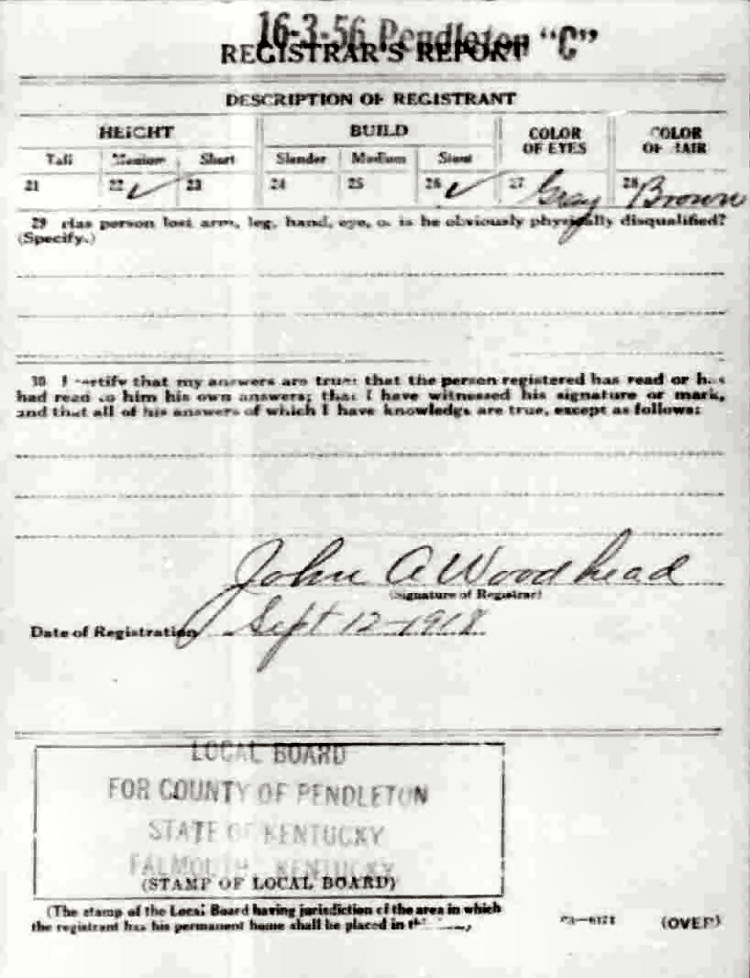 16-3-56 Pendleton "C"
REGISTRAR'S REPORT
DESCRIPTION OF REGISTRANT
HEIGHT BUILD COLOR OF EYES COLOR OF HAIR
Tall Medium Short Slender Medium Stout
21 22 ✓ 23 24 25 26 ✓ 27 Gray 28 Brown
29 Has person lost arm, leg, hand, eye, or is he obviously physically disqualified?
(Specify.)
30 I certify that my answers are true; that the person registered has read or has
had read to him his own answers; that I have witnessed his signature or mark,
and that all of his answers of which I have knowledge are true, except as follows:
John A Woodhead
(Signature of Registrar)
Date of Registration Sept 12-1918
LOCAL BOARD
FOR COUNTY OF PENDLETON
STATE OF KENTUCKY
FALMOUTH, KENTUCKY
(STAMP OF LOCAL BOARD)
(The stamp of the Local Board having jurisdiction of the area in which
the registrant has his permanent home shall be placed in
(OVER)